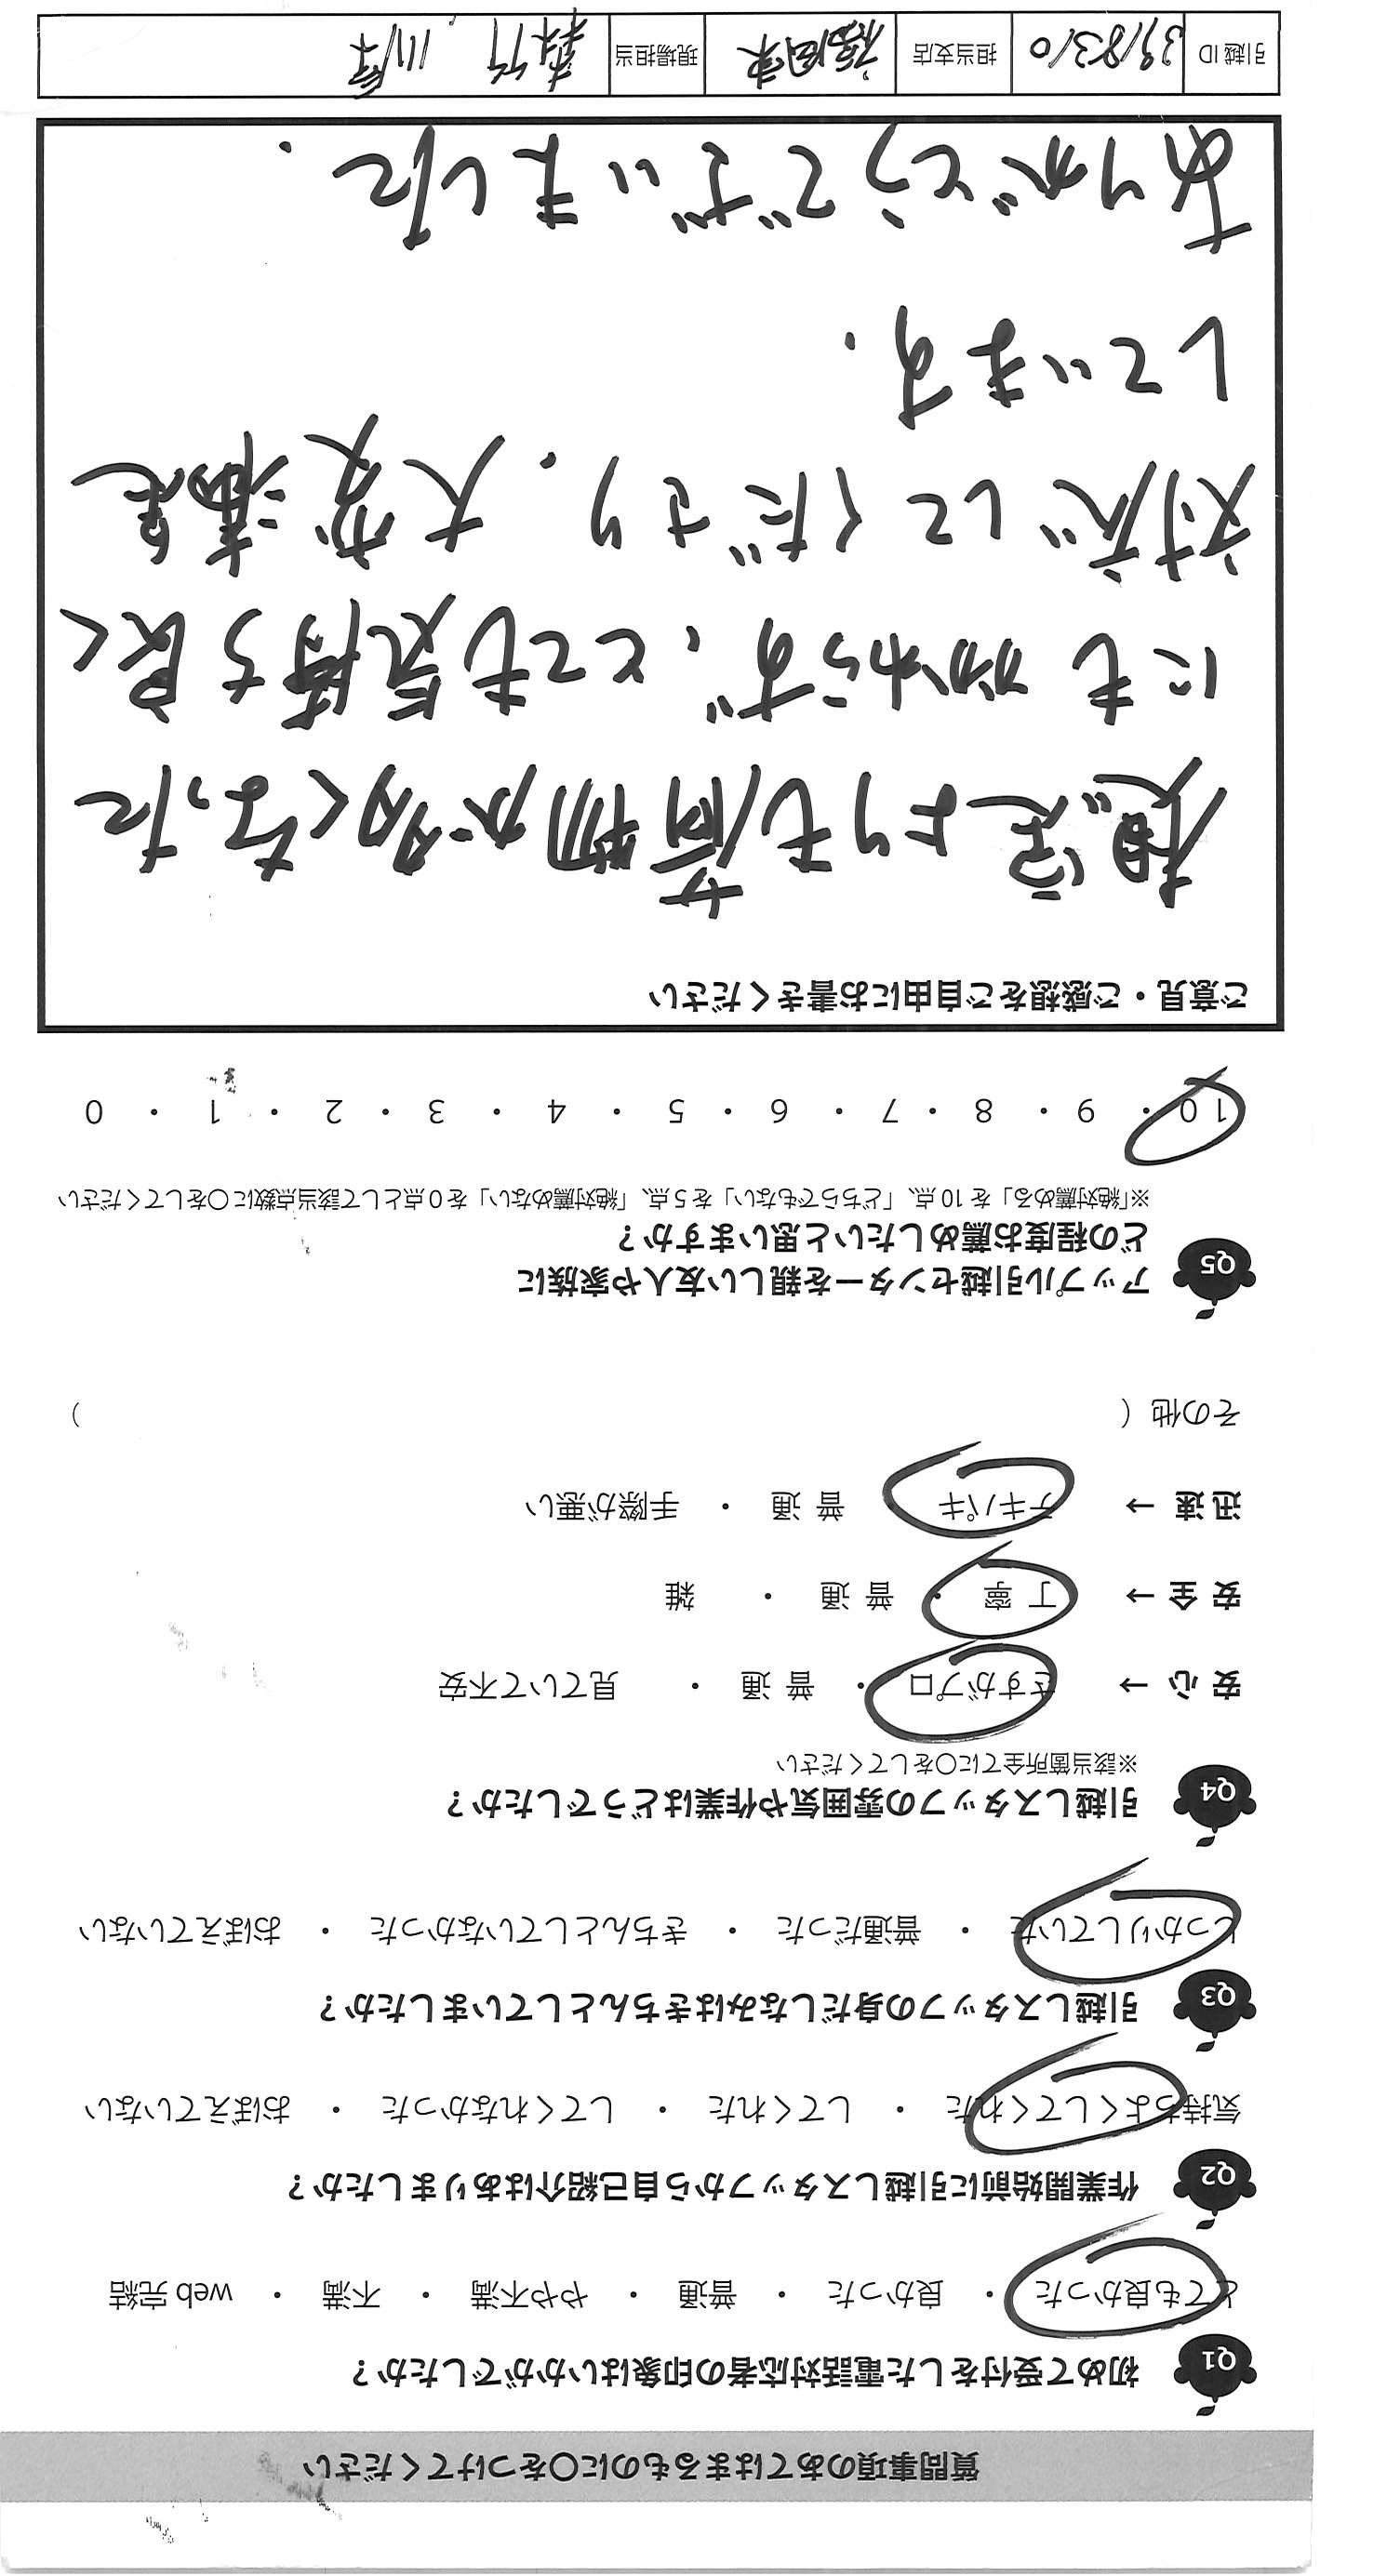 質問事項のあてはまるものに○をつけてください
Q1 初めて受付をした電話対応者の印象はいかがでしたか？
とても良かった ・ 良かった ・ 普通 ・ やや不満 ・ 不満 ・ web 完結
Q2 作業開始前に引越しスタッフから自己紹介はありましたか？
気持ちよくしてくれた ・ してくれた ・ してくれなかった ・ おぼえていない
Q3 引越しスタッフの身だしなみはきちんとしていましたか？
しっかりしていた ・ 普通だった ・ きちんとしていなかった ・ おぼえていない
Q4 引越しスタッフの雰囲気や作業はどうでしたか？
※該当箇所全てに○をしてください
安 心 → さすがプロ ・ 普 通 ・ 見ていて不安
安 全 → 丁 寧 ・ 普 通 ・ 雑
迅 速 → テキパキ ・ 普 通 ・ 手際が悪い
その他（ ）
Q5 アップル引越センターを親しい友人や家族に
どの程度お薦めしたいと思いますか？
※「絶対薦める」を 10 点、「どちらでもない」を 5 点、「絶対薦めない」を 0 点として該当点数に○をしてください
10 ・ 9 ・ 8 ・ 7 ・ 6 ・ 5 ・ 4 ・ 3 ・ 2 ・ 1 ・ 0
ご意見・ご感想をご自由にお書きください
想定よりも荷物が多くなった
にもかかわらず、とても気持ち良く
対応してくださり、大変満足
しています.
ありがとうございました.
引越 ID 3918310 担当支店 福岡東 現場担当